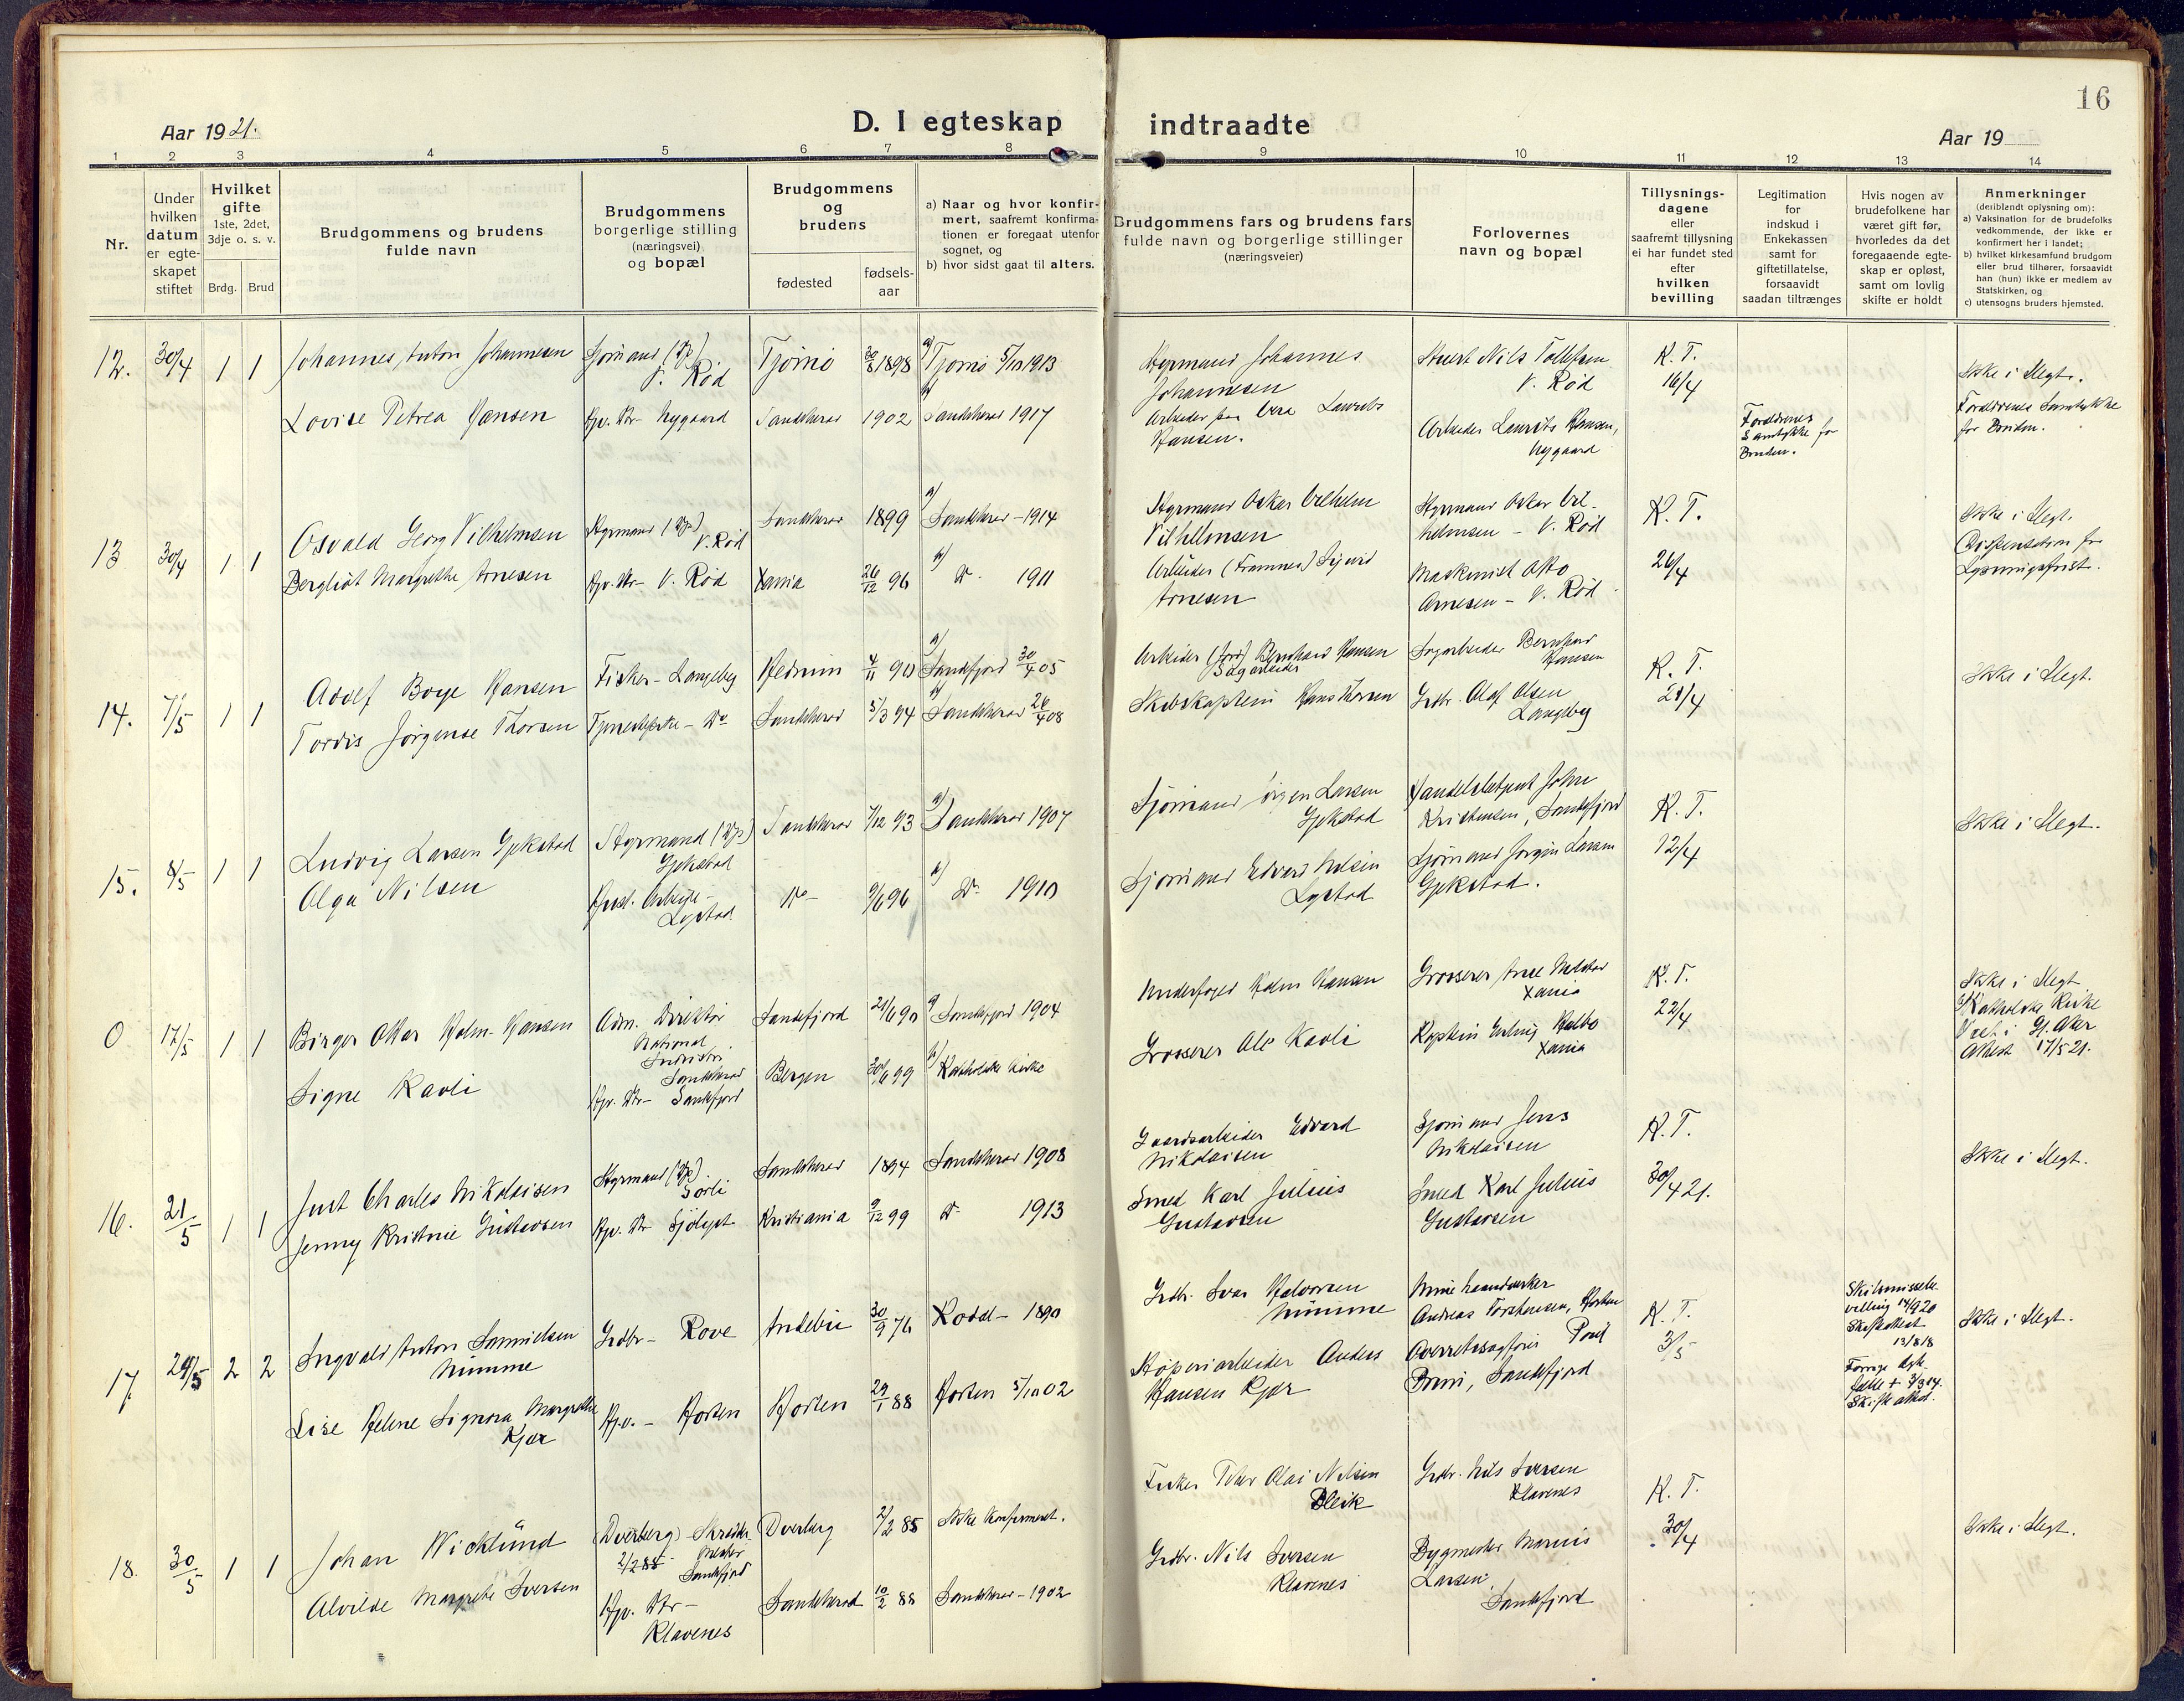 16
Aar 1921.
D. I egteskap indtraadte
Aar 19
1 2 3 4 5 6 7 8 9 10 11 12 13 14
Nr.
Under hvilken datum er egte-skapet stiftet
Hvilket gifte 1ste, 2det, 3dje o. s. v.
Brdg. Brud
Brudgommens og brudens fulde navn
Brudgommens borgerlige stilling (næringsvei) og bopæl
Brudgommens og brudens
fødested
fødsels-aar
a) Naar og hvor konfir-mert, saafremt konfirma-tionen er foregaat utenfor sognet, og
b) hvor sidst gaat til alters.
Brudgommens fars og brudens fars fulde navn og borgerlige stillinger (næringsveier)
Forlovernes navn og bopæl
Tillysnings-dagene eller saafremt tillysning ei har fundet sted efter hvilken bevilling
Legitimation for indskud i Enkekassen samt for giftetillatelse, forsaavidt saadan tiltrænges
Hvis nogen av brudefolkene har været gift før, hvorledes da det foregaaende egte-skap er opløst, samt om lovlig skifte er holdt
Anmerkninger (deriblandt oplysning om):
a) Vaksination for de brudefolks vedkommende, der ikke er konfirmert her i landet;
b) hvilket kirkesamfund brudgom eller brud tilhører, forsaavidt han (hun) ikke er medlem av Statskirken, og
c) utensogns bruders hjemsted.
12. 30/4 1 1 Johannes Anton Johannesen
V. Rød
Tjømø 1898 a) Tjømø 5/10 1913
Styrmand Johannes Johannesen
Nils Tollefsen V. Rød
K. T. 16/4
Ikke i Slegt.
Lovise Petrea Hansen
Hjv. Dtr Nygaard
Sandeherad 1902 Sandeherad 1917
Laurits Hansen.
Arbeider Laurits Hansen, Nygaard
Forældrenes Samtykke for Bruden.
Forældrenes Samtykke for Bruden.
13 30/4 1 1 Osvald Georg Vilhelmsen
Styrmand V. Rød
Sandeherad 1899 a) Sandeherad - 1914
Styrmand Oskar Vilhelm Vilhelmsen
Styrmand Oskar Vilhelmsen - V. Rød
K. T. 26/4
Ikke i Slegt.
Dispensation for Lysningsfrist.
Bergliot Margrethe Arnesen
Hjv. Dtr - V. Rød
Xania 26/12 96 Do. 1911
Arbeider (Framnes) Sigurd Arnesen
Maskinist Otto Arnesen - V. Rød
14. 7/5 1 1 Adolf Boye Hansen
Fisker - Langeby
Hedrum 4/11 90 a) Sandefjord 30/4 05
Arbeider (Jord) Bernhard Hansen
Sagarbeider
Sagarbeider Bernhard Hansen
K. T. 21/4
Ikke i Slegt.
Tordis Jørgense Thorsen
Do
Sandeherad 5/3 94 Sandeherad 26/4 08
Skibskaptein Hans Thorsen
Grdbr. Olaf Olsen Langeby
15. 8/5 1 1 Ludvig Larsen Gjekstad
Styrmand Gjekstad
Sandeherad 7/12 93 a) Sandeherad 1907
Sjømand Jørgen Larsen Gjekstad
John Kristensen, Sandefjord
K. T. 12/4
Ikke i Slegt.
Olga Nilsen
Husl. Arbeide - Lystad
Do - 9/6 96 Do. 1910
Sjømand Edvard Nilsen Lystad
Sjømand Jørgen Larsen Gjekstad.
0 17/5 1 1 Birger Ottar Holm-Hansen
Adm. Direktør National Industri. Sandeherad
Sandefjord 21/6 90 a) Sandefjord 1904
Underfoged Holm Hansen
Grosserer Arne Xania
K. T. 22/4
Ikke i Slegt
Katholske Kirke
Viet i Gl. Aker
Attest 17/5 21.
Signe Kavli
Hjv. Dtr - Sandefjord
Bergen 30/6 99 b) Katholske Kirke
Grosserer Ole Kavli
Kaptein Erling Xania
16. 21/5 1 1 Just Charles Nikolaisen
Styrmand Sørli
Sandeherad 1894 Sandeherad 1908
Gaardsarbeider Edvard Nikolaisen
Sjømand Jens Nikolaisen
K. T. 30/4 21.
Ikke i Slegt.
Jenny Kristine Gustavsen
Hjv. Dtr
Kristiania 9/12 99 Do 1913
Smed Karl Julius Gustavsen
Smed Karl Julius Gustavsen
17. 24/5 2 2 Ingvald Anton Samuelsen Nümme
Grdbr - Rove
Andebu 30/9 76 - 1890
Grdbr. Halvorsen Nümme
Minehaandverker
Andreas Horten
K. T. 3/5
Skilsmissebevilling 14/9 20
Skifteattest 13/8 18
Forrige Egtefælle + 3/3 14.
Skifteattest.
Ikke i Slegt.
Lise Helene Signora Margrethe Kjær
Hjv. - Horten
Horten 29/1 88 Horten 5/10 02
Støperiarbeider Anders Hansen Kjær
Overretssagfører Poul Sandefjord
18. 30/5 1 1 Johan Wicklünd
(Dverberg) 2/2 85
Skrædder Sandefjord
Dverberg 2/2 85 Ikke konfirmert.
Fisker Peder Olai Nilsen Bleik
Grdbr. Nils Iversen Klavenes
K. T. 30/4
Ikke i Slegt.
Alvilde Margrethe Iversen
Hjv. Dtr - Klavenes
Sandeherad 10/2 88 Sandeherad - 1902
Grdbr. Nils Iversen Klavenes
Bygmester Marius Larsen, Sandefjord